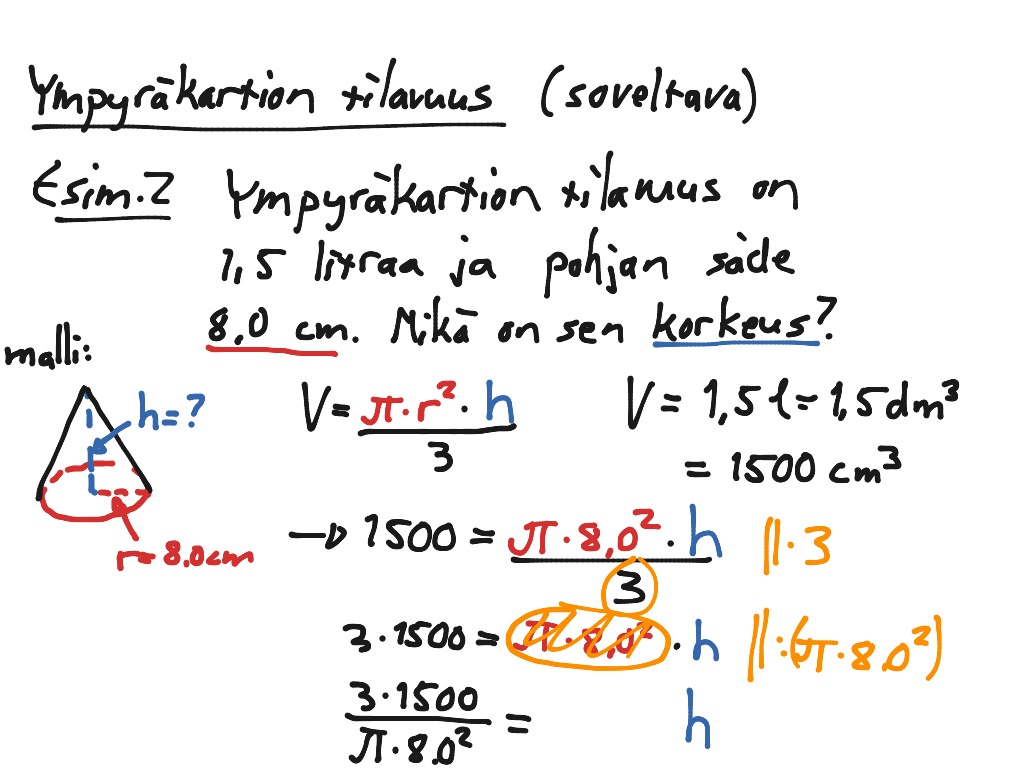 Ympyräkartion tilavuus (soveltava)
Esim. 2 Ympyräkartion tilavuus on
1,5 litraa ja pohjan säde
8,0 cm. Mikä on sen korkeus?
malli:
h=?
r= 8.0cm
V= π·r²·h
3
V = 1,5 l = 1,5 dm³
= 1500 cm³
→ 1500 = π·8,0²·h ||·3
3
3·1500 = π·8,0²·h ||:(π·8.0²)
3·1500 = h
π·8.0²